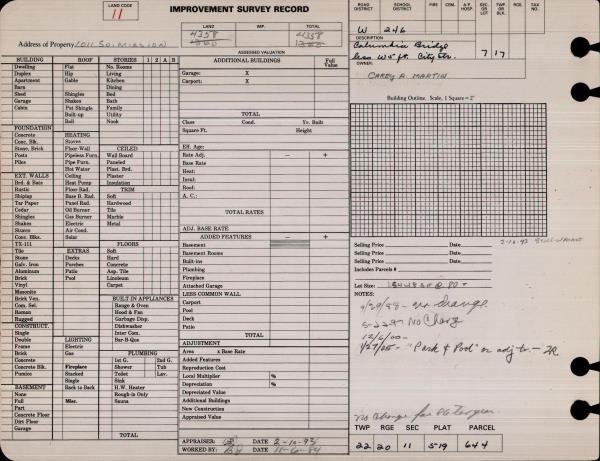 LAND CODE
11
IMPROVEMENT SURVEY RECORD
LAND IMP. TOTAL
4358 4358
Address of Property 1011 So. Mission
ASSESSED VALUATION
ROAD DISTRICT SCHOOL DISTRICT FIRE CEM. A.P. HOSP. SEC OR LOT TWP OR BLK. RGE. TAX NO.
W 246
DESCRIPTION
Columbia Bridge
less W5' ft. City Str. 7 17
OWNER:
CAREY A. MARTIN
BUILDING ROOF STORIES 1 2 A B
Dwelling Flat No. Rooms
Duplex Hip Living
Apartment Gable Kitchen
Barn Dining
Shed Shingles Bed
Garage Shakes Bath
Cabin Pot Shingle Family
Built-up Utility
Roll Nook
FOUNDATION
Concrete HEATING
Conc. Blk. Stoves
Stone, Brick Floor-Wall CEILED
Posts Pipeless Furn. Wall Board
Piles Pipe Furn. Paneled
Hot Water Plast. Brd.
EXT. WALLS Ceiling Plaster
Brd. & Bats Heat Pump Insulation
Rustic Floor Rad. TRIM
Shiplap Base B. Rad. Soft
Tar Paper Panel Rad. Hardwood
Cedar Oil Burner Tile
Shingles Gas Burner Marble
Shakes Electric Metal
Stucco Air Cond.
Conc. Blks. Solar
TX-111 FLOORS
Tile EXTRAS Soft
Stone Decks Hard
Galv. Iron Porches Concrete
Aluminum Patio Asp. Tile
Brick Pool Linoleum
Vinyl Carpet
Masonite
Brick Ven. BUILT-IN APPLIANCES
Com. Sel. Range & Oven
Roman Hood & Fan
Rugged Garbage Disp.
CONSTRUCT. Dishwasher
Single Inter Com.
Double LIGHTING Bar-B-Que
Frame Electric
Brick Gas PLUMBING
Concrete 1st G. 2nd G.
Concrete Blk. Fireplace Shower Tub
Pumice Stacked Toilet Lav.
Single Sink
BASEMENT Back to Back H.W. Heater
None Rough-in Only
Full Misc. Sauna
Part
Concrete Floor
Dirt Floor
Garage
TOTAL
ADDITIONAL BUILDINGS Full Value
Garage: X
Carport: X
TOTAL
Class Cond. Yr. Built
Square Ft. Height
Eff. Age:
Rate Adj. − +
Base Rate
Heat:
Insul:
Roof:
A. C.:
TOTAL RATES
ADJ. BASE RATE
ADDED FEATURES − +
Basement
Basement Rooms
Built-ins
Plumbing
Fireplace
Attached Garage
LESS COMMON WALL
Carport
Pool
Deck
Patio
TOTAL
ADJUSTMENT
Area x Base Rate
Added Features
Reproduction Cost
Local Multiplier %
Depreciation %
Depreciated Value
Additional Buildings
New Construction
Appraised Value
APPRAISER: DATE 2-10-93
WORKED BY: DATE 11-6-84
Building Outline. Scale, 1 Square = 2'
2-10-93 Still Vacant
Selling Price Date
Selling Price Date
Selling Price Date
Includes Parcels #
Lot Size:
NOTES:
no change
5-22-97 No Chang
12/6/00 —
4/27/05 - "Park & Pool" no adj to - JR
No Change for
TWP RGE SEC PLAT PARCEL
22 20 11 5-19 644